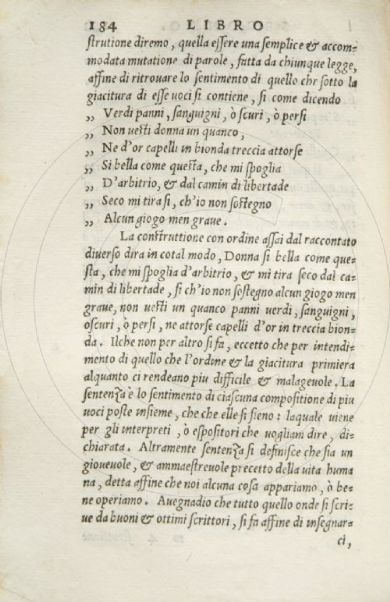 184 LIBRO
ſtrutione diremo, quella eſſere una ſemplice & accom-
modata mutatione di parole, fatta da chiunque legge,
affine di ritrouare lo ſentimento di quello che ſotto la
giacitura di eſſe uoci ſi contiene, ſi come dicendo
„ Verdi panni, ſanguigni, ò ſcuri, ò perſi
„ Non ueſti donna un quanco,
„ Ne d'or capelli in bionda treccia attorſe
„ Si bella come queſta, che mi ſpoglia
„ D'arbitrio, & dal camin di libertade
„ Seco mi tira ſi, ch'io non ſoſtegno
„ Alcun giogo men graue.
La conſtruttione con ordine aſſai dal raccontato
diuerſo dira in cotal modo, Donna ſi bella come que-
ſta, che mi ſpoglia d'arbitrio, & mi tira ſeco dal ca-
min di libertade, ſi ch'io non ſoſtegno alcun giogo men
graue, non ueſti un quanco panni uerdi, ſanguigni,
oſcuri, ò perſi, ne attorſe capelli d'or in treccia bion-
da. Ilche non per altro ſi fa, eccetto che per intendi-
mento di quello che l'ordine & la giacitura primiera
alquanto ci rendeano piu difficile & malageuole. La
ſentenza è lo ſentimento di ciaſcuna compoſitione di piu
uoci poſte inſieme, che che elle ſi ſieno: laquale uiene
per gli interpreti, ò eſpoſitori che uogliam dire, di-
chiarata. Altramente ſentenza ſi definiſce che ſia un
gioueuole, & ammaeſtreuole precetto della uita huma
na, detta affine che noi alcuna coſa appariamo, ò be-
ne operiamo. Auegnadio che tutto quello onde ſi ſcri-
ue da buoni & ottimi ſcrittori, ſi fa affine di inſegnar-
ci,